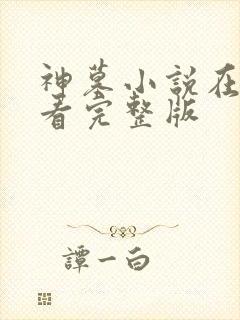 神墓小说在
看完整版
譚一白